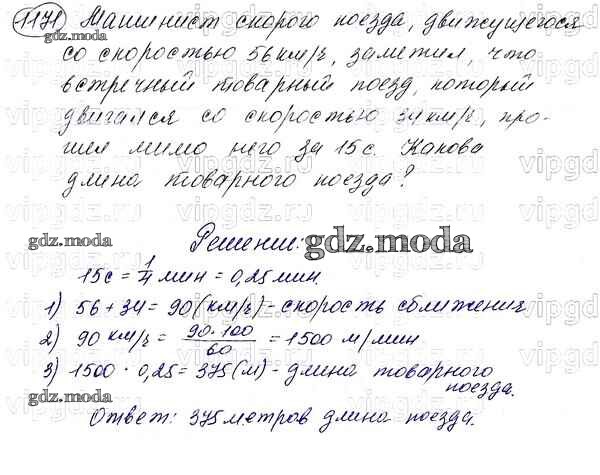 1171) Машинист скорого поезда, движущегося
со скоростью 56 км/ч, заметил, что
встречный товарный поезд, который
двигался со скоростью 34 км/ч, про-
шел мимо него за 15 с. Какова
длина товарного поезда?
gdz.moda
Решение:
gdz.moda
gdz.moda
15с = 1/4 мин = 0,25 мин.
1) 56 + 34 = 90 (км/ч) - скорость сближения
2) 90 км/ч = 90·100/60 = 1500 м/мин
3) 1500 · 0,25 = 375 (м) - длина товарного
поезда.
gdz.moda
Ответ: 375 метров длина поезда.